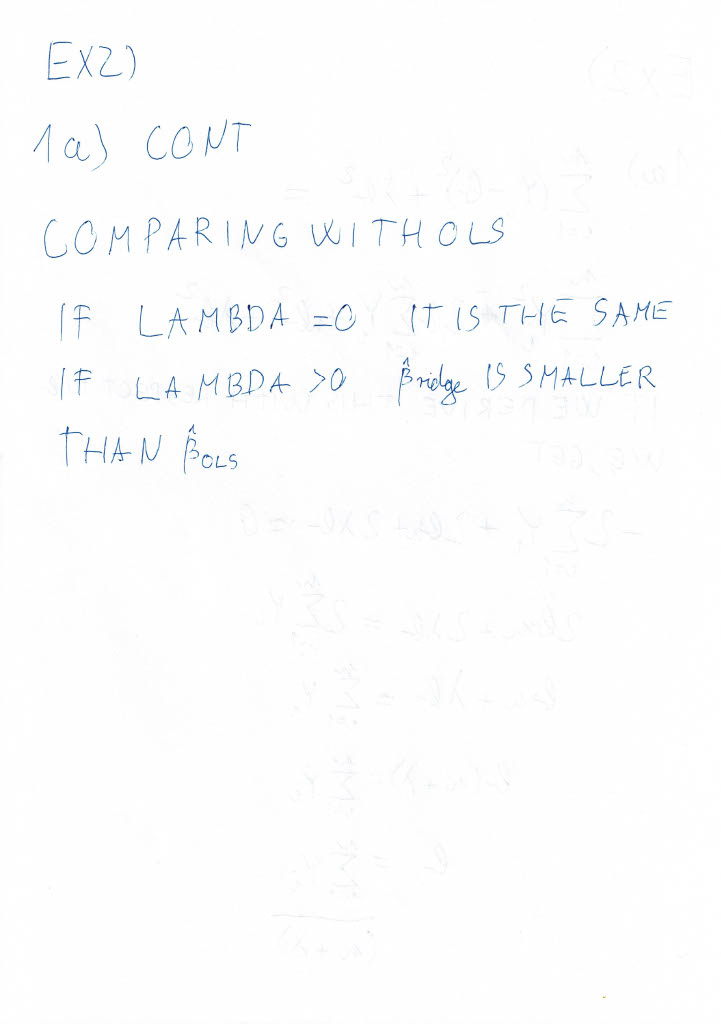 EX2)
1a) CONT
COMPARING WITH OLS
IF LAMBDA =0 IT IS THE SAME
IF LAMBDA >0 β̂ridge IS SMALLER
THAN β̂OLS